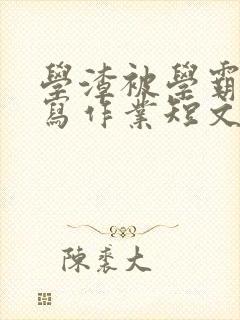 學渣被學霸
寫作業短文
陳裘大